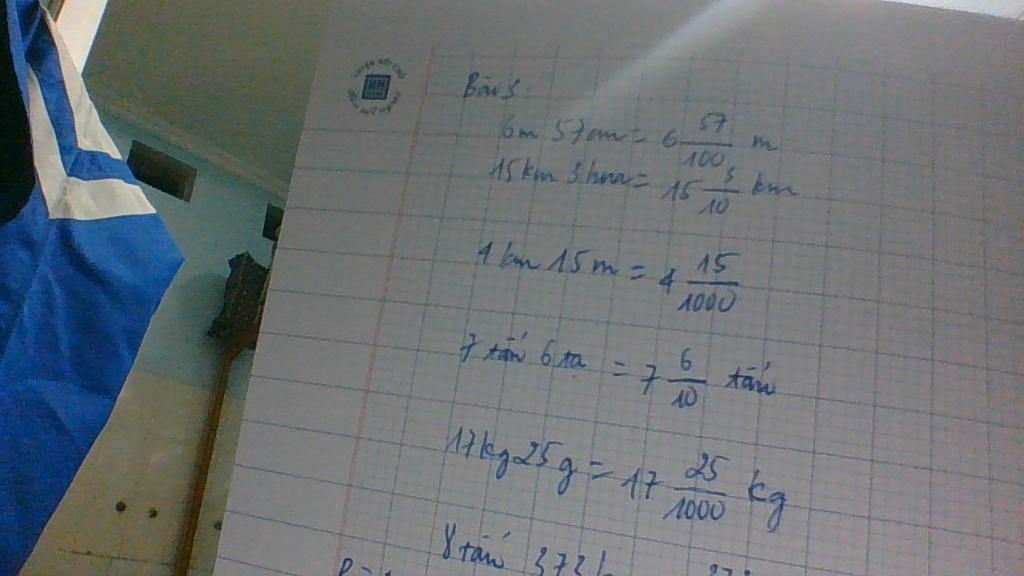 Bài 3:
6m 57cm = 6 57/100 m
15km 3hm = 15 3/10 km
4km 15m = 4 15/1000
7 tấn 6 tạ = 7 6/10 tấn
17kg 25g = 17 25/1000 kg
8 tấn 373